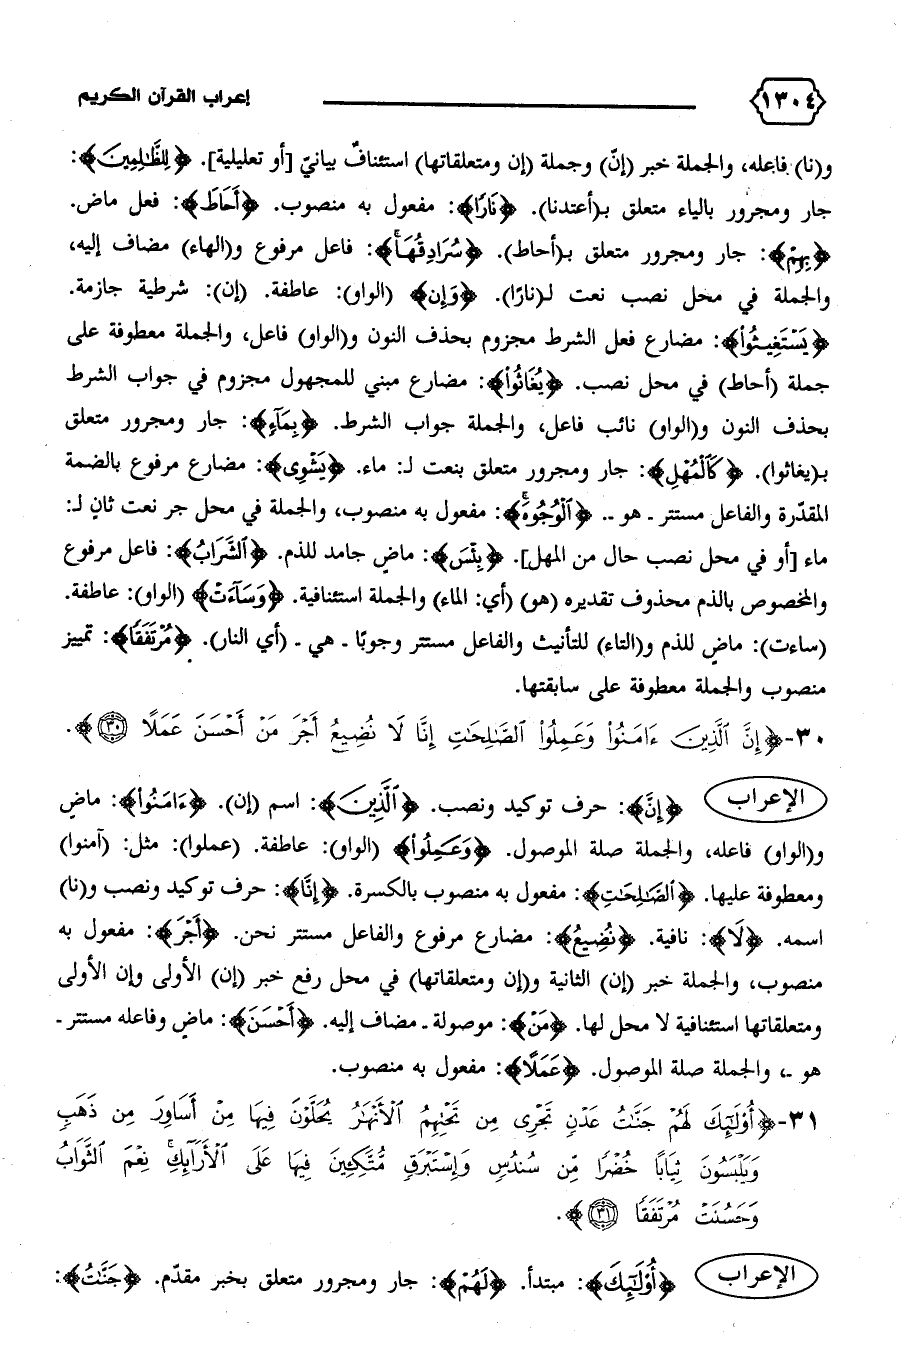 ١٣٠٤ إعراب القرآن الكريم
و(نا) فاعله، والجملة خبر (إنّ) وجملة (إن ومتعلقاتها) استئنافٌ بيانيّ [أو تعليلية]. ﴿لِلظَّٰلِمِينَ﴾:
جار ومجرور بالياء متعلق بـ(أعتدنا). ﴿نَارًا﴾: مفعول به منصوب. ﴿أَحَاطَ﴾: فعل ماض.
﴿بِهِمْ﴾: جار ومجرور متعلق بـ(أحاط). ﴿سُرَادِقُهَاۚ﴾: فاعل مرفوع و(الهاء) مضاف إليه،
والجملة في محل نصب نعت لـ(نارًا). ﴿وَإِن﴾ (الواو): عاطفة. (إن): شرطية جازمة.
﴿يَسْتَغِيثُواْ﴾: مضارع فعل الشرط مجزوم بحذف النون و(الواو) فاعل، والجملة معطوفة على
جملة (أحاط) في محل نصب. ﴿يُغَاثُواْ﴾: مضارع مبني للمجهول مجزوم في جواب الشرط
بحذف النون و(الواو) نائب فاعل، والجملة جواب الشرط. ﴿بِمَآءٍ﴾: جار ومجرور متعلق
بـ(يغاثوا). ﴿كَٱلْمُهْلِ﴾: جار ومجرور متعلق بنعت لـ: ماء. ﴿يَشْوِى﴾: مضارع مرفوع بالضمة
المقدّرة والفاعل مستتر ـ هو ـ. ﴿ٱلْوُجُوهَۚ﴾: مفعول به منصوب، والجملة في محل جر نعت ثانٍ لـ:
ماء [أو في محل نصب حال من المهل]. ﴿بِئْسَ﴾: ماضٍ جامد للذم. ﴿ٱلشَّرَابُ﴾: فاعل مرفوع
والمخصوص بالذم محذوف تقديره (هو) (أي: الماء) والجملة استئنافية. ﴿وَسَآءَتْ﴾ (الواو): عاطفة.
(ساءت): ماضٍ للذم و(التاء) للتأنيث والفاعل مستتر وجوبًا ـ هي ـ (أي النار). ﴿مُرْتَفَقًا﴾: تمييز
منصوب والجملة معطوفة على سابقتها.
٣٠-﴿إِنَّ ٱلَّذِينَ ءَامَنُواْ وَعَمِلُواْ ٱلصَّٰلِحَٰتِ إِنَّا لَا نُضِيعُ أَجْرَ مَنْ أَحْسَنَ عَمَلًا ٣٠﴾.
الإعراب ﴿إِنَّ﴾: حرف توكيد ونصب. ﴿ٱلَّذِينَ﴾: اسم (إن). ﴿ءَامَنُواْ﴾: ماض
و(الواو) فاعله، والجملة صلة الموصول. ﴿وَعَمِلُواْ﴾ (الواو): عاطفة. (عملوا): مثل: (آمنوا)
ومعطوفة عليها. ﴿ٱلصَّٰلِحَٰتِ﴾: مفعول به منصوب بالكسرة. ﴿إِنَّا﴾: حرف توكيد ونصب و(نا)
اسمه. ﴿لَا﴾: نافية. ﴿نُضِيعُ﴾: مضارع مرفوع والفاعل مستتر نحن. ﴿أَجْرَ﴾: مفعول به
منصوب، والجملة خبر (إن) الثانية و(إن ومتعلقاتها) في محل رفع خبر (إن) الأولى وإن الأولى
ومتعلقاتها استئنافية لا محل لها. ﴿مَنْ﴾: موصولة ـ مضاف إليه. ﴿أَحْسَنَ﴾: ماض وفاعله مستتر ـ
هو ـ، والجملة صلة الموصول. ﴿عَمَلًا﴾: مفعول به منصوب.
٣١-﴿أُوْلَٰٓئِكَ لَهُمْ جَنَّٰتُ عَدْنٍ تَجْرِى مِن تَحْتِهِمُ ٱلْأَنْهَٰرُ يُحَلَّوْنَ فِيهَا مِنْ أَسَاوِرَ مِن ذَهَبٍ
وَيَلْبَسُونَ ثِيَابًا خُضْرًا مِّن سُندُسٍ وَإِسْتَبْرَقٍ مُّتَّكِـِٔينَ فِيهَا عَلَى ٱلْأَرَآئِكِۚ نِعْمَ ٱلثَّوَابُ
وَحَسُنَتْ مُرْتَفَقًا ٣١﴾.
الإعراب ﴿أُوْلَٰٓئِكَ﴾: مبتدأ. ﴿لَهُمْ﴾: جار ومجرور متعلق بخبر مقدّم. ﴿جَنَّٰتُ﴾: